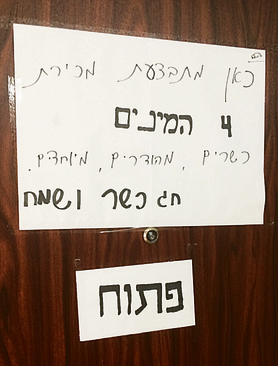 כאן מתבצעת מכירת
4 המינים
כשרים, מהודרים, מיוחדים.
חג כשר ושמח
פתוח